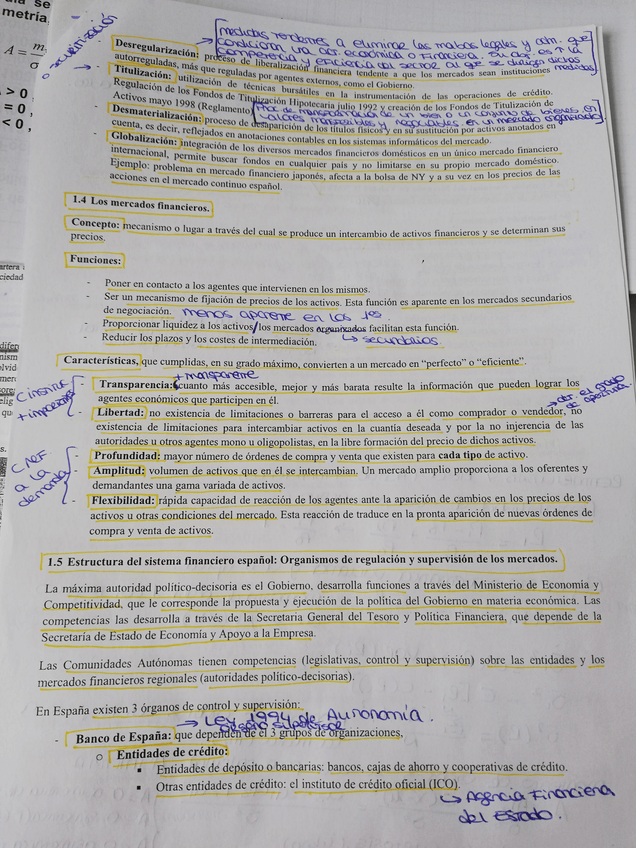 o securitización
medidas tendentes a eliminar las trabas legales y adm. que
condicionan una act. económica o financiera. Su obj. es ↑ la
competencia y eficiencia del sector al que se dirigen dichas
medidas
Desregularización: proceso de liberalización financiera tendente a que los mercados sean instituciones
autorreguladas, más que reguladas por agentes externos, como el Gobierno.
- Titulización: utilización de técnicas bursátiles en la instrumentación de las operaciones de crédito.
Regulación de los Fondos de Titulización Hipotecaria julio 1992 y creación de los Fondos de Titulización de
Activos mayo 1998 (Reglamento)
Proc. de transformación de un bien o un conjunto de bienes, en
valores transmisibles y negociables en un mercado organizado
Desmaterialización: proceso de desaparición de los títulos físicos y en su sustitución por activos anotados en
cuenta, es decir, reflejados en anotaciones contables en los sistemas informáticos del mercado.
Globalización: integración de los diversos mercados financieros domésticos en un único mercado financiero
internacional, permite buscar fondos en cualquier país y no limitarse en su propio mercado doméstico.
Ejemplo: problema en mercado financiero japonés, afecta a la bolsa de NY y a su vez en los precios de las
acciones en el mercado continuo español.
1.4 Los mercados financieros.
Concepto: mecanismo o lugar a través del cual se produce un intercambio de activos financieros y se determinan sus
precios.
Funciones:
- Poner en contacto a los agentes que intervienen en los mismos.
- Ser un mecanismo de fijación de precios de los activos. Esta función es aparente en los mercados secundarios
de negociación. menos aparente en los 1os.
- Proporcionar liquidez a los activos/los mercados organizados facilitan esta función.
- Reducir los plazos y los costes de intermediación. ↳ secundarios.
Características, que cumplidas, en su grado máximo, convierten a un mercado en "perfecto" o "eficiente".
+ transparente
- Transparencia: cuanto más accesible, mejor y más barata resulte la información que pueden lograr los
agentes económicos que participen en él.
→ dep. el grado de apertura.
- Libertad: no existencia de limitaciones o barreras para el acceso a él como comprador o vendedor, no
existencia de limitaciones para intercambiar activos en la cuantía deseada y por la no injerencia de las
autoridades u otros agentes mono u oligopolistas, en la libre formación del precio de dichos activos.
- Profundidad: mayor número de órdenes de compra y venta que existen para cada tipo de activo.
- Amplitud: volumen de activos que en él se intercambian. Un mercado amplio proporciona a los oferentes y
demandantes una gama variada de activos.
- Flexibilidad: rápida capacidad de reacción de los agentes ante la aparición de cambios en los precios de los
activos u otras condiciones del mercado. Esta reacción de traduce en la pronta aparición de nuevas órdenes de
compra y venta de activos.
a la
demanda
1.5 Estructura del sistema financiero español: Organismos de regulación y supervisión de los mercados.
La máxima autoridad político-decisoria es el Gobierno, desarrolla funciones a través del Ministerio de Economía y
Competitividad, que le corresponde la propuesta y ejecución de la política del Gobierno en materia económica. Las
competencias las desarrolla a través de la Secretaria General del Tesoro y Política Financiera, que depende de la
Secretaría de Estado de Economía y Apoyo a la Empresa.
Las Comunidades Autónomas tienen competencias (legislativas, control y supervisión) sobre las entidades y los
mercados financieros regionales (autoridades político-decisorias).
En España existen 3 órganos de control y supervisión:
→ Ley 1994 de Autonomía.
órgano supervisor
- Banco de España: que dependen de él 3 grupos de organizaciones,
o Entidades de crédito:
▪ Entidades de depósito o bancarias: bancos, cajas de ahorro y cooperativas de crédito.
▪ Otras entidades de crédito: el instituto de crédito oficial (ICO).
↳ Agencia Financiera
del Estado.